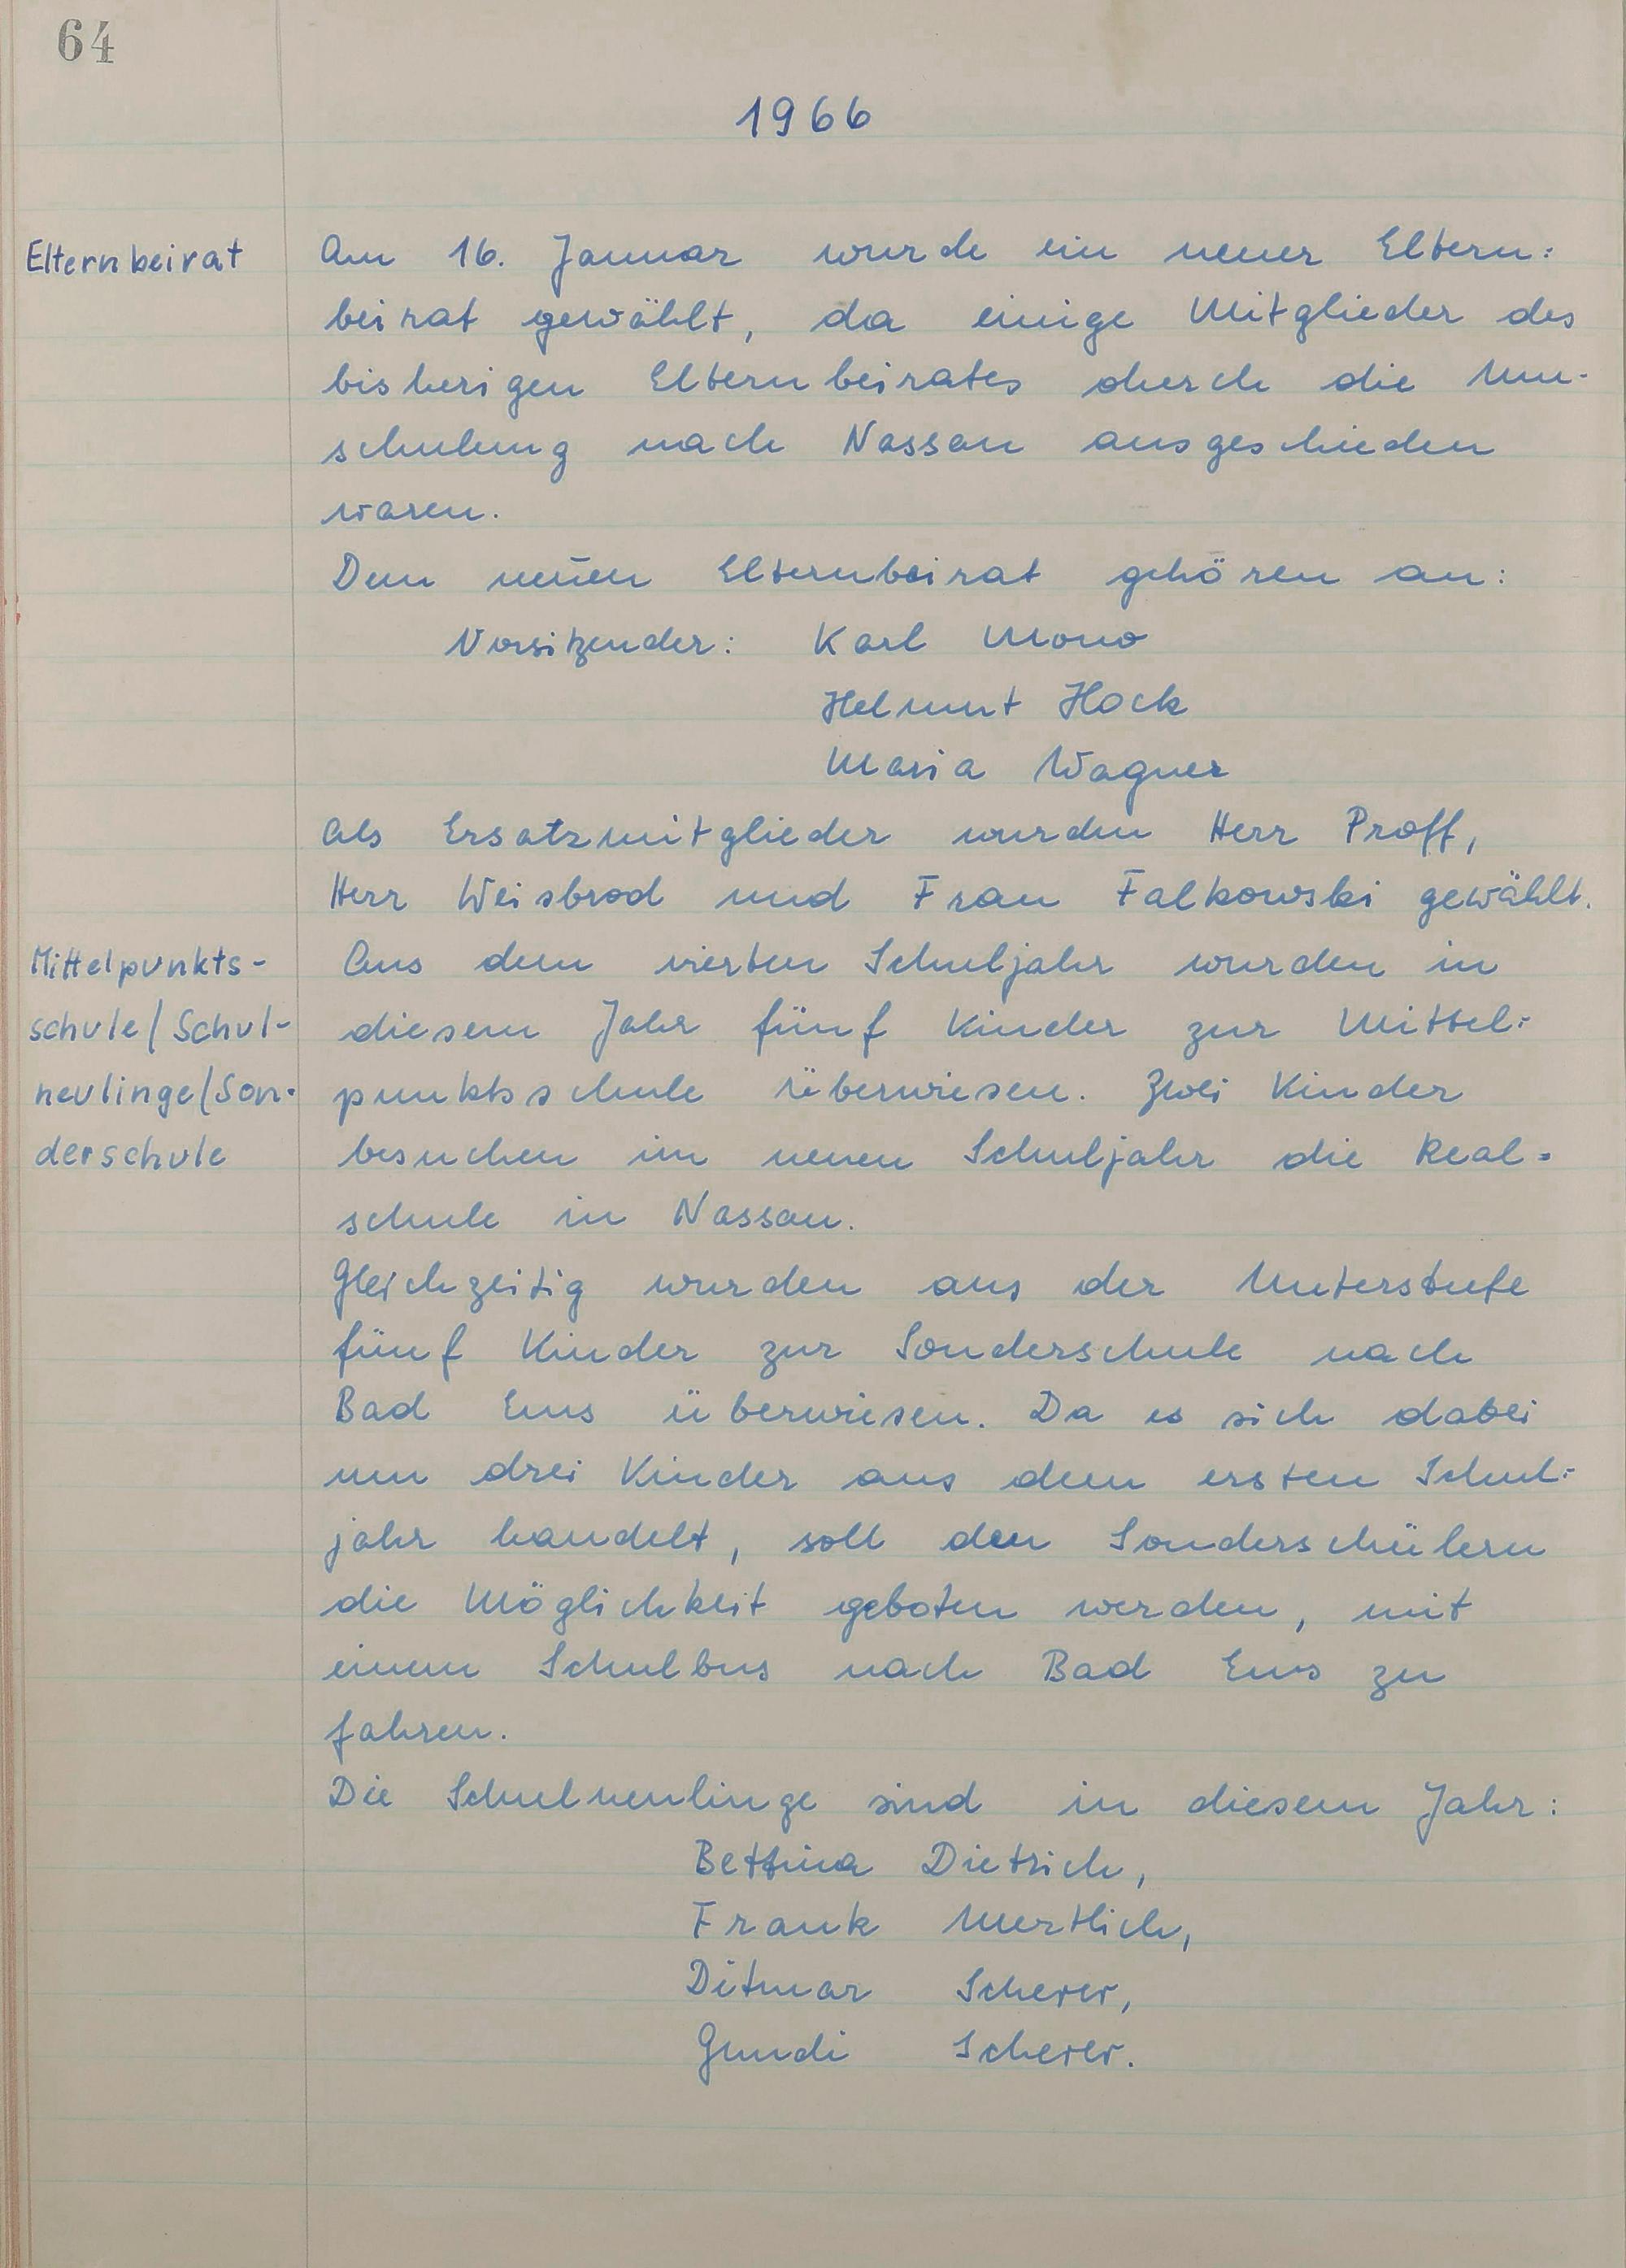 64
1966
Elternbeirat
Am 16. Januar wurde ein neuer Eltern:
beirat gewählt, da einige Mitglieder des
bisherigen Elternbeirates durch die Um-
schulung nach Nassau ausgeschieden
waren.
Dem neuen Elternbeirat gehören an:
Vorsitzender: Karl Mono
Helmut Hock
Maria Wagner
Als Ersatzmitglieder wurden Herr Proff,
Herr Weisbrod und Frau Falkowski gewählt.
Mittelpunkts-
schule/Schul-
neulinge/Son-
derschule
Aus dem vierten Schuljahr wurden in
diesem Jahr fünf Kinder zur Mittel:
punktsschule überwiesen. Zwei Kinder
besuchen im neuen Schuljahr die Real=
schule in Nassau.
Gleichzeitig wurden aus der Unterstufe
fünf Kinder zur Sonderschule nach
Bad Ems überwiesen. Da es sich dabei
um drei Kinder aus dem ersten Schul:
jahr handelt, soll den Sonderschülern
die Möglichkeit geboten werden, mit
einem Schulbus nach Bad Ems zu
fahren.
Die Schulneulinge sind in diesem Jahr:
Bettina Dietrich,
Frank Mertlich,
Ditmar Scherer,
Gundi Scherer.